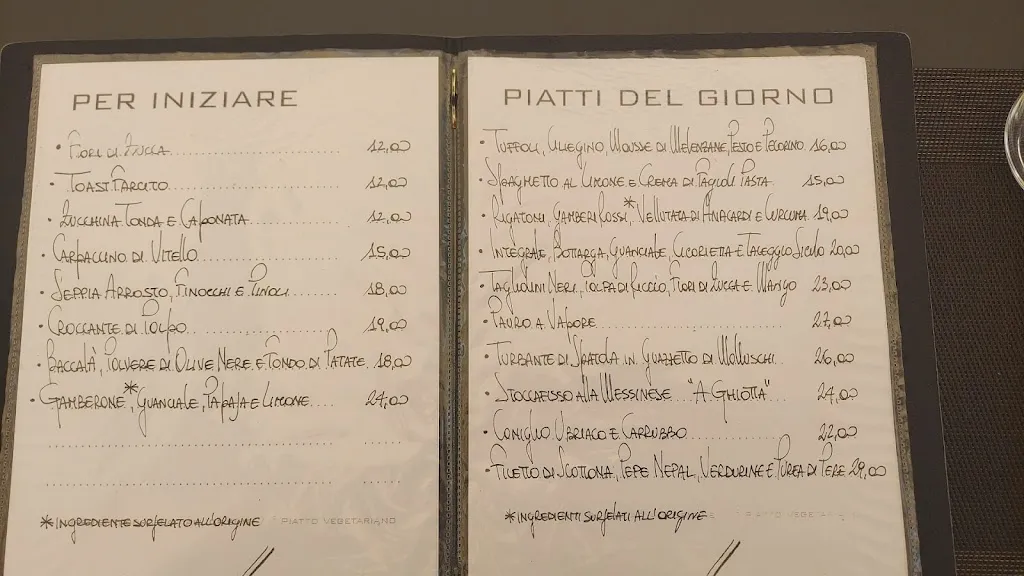 PER INIZIARE
• Fiori di Zucca.......... 12,00
• Toast Farcito.......... 12,00
• Zucchina Tonda e Caponata.......... 12,00
• Carpaccino di Vitello.......... 15,00
• Seppia Arrosto, Finocchi e Pinoli.......... 18,00
• Croccante di Polpo.......... 19,00
• Baccalà, Polvere di Olive Nere e Fondo di Patate. 18,00
• Gamberone*, Guanciale, Papaja e Limone.... 24,00
*INGREDIENTE SURGELATO ALL'ORIGINE PIATTO VEGETARIANO
PIATTI DEL GIORNO
• Tuffoli, Ciliegino, Mousse di Melenzane, Pesto e Pecorino. 16,00
• Spaghetto al Limone e Crema di Fagioli Pasta 15,00
• Rigatoni, Gamberi Rossi*, Vellutata di Anacardi e Curcuma. 19,00
• Integrale, Bottarga, Guanciale, Cicorietta e Taleggio Siculo 20,00
• Tagliolini Neri, Polpa di Riccio, Fiori di Zucca e Mango 23,00
• Pauro a Vapore.......... 27,00
• Turbante di Spatola in Guazzetto di Molluschi.. 26,00
• Stoccafisso alla Messinese... "A Ghiotta" 24,00
• Coniglio Ubriaco e Carrubbo.......... 22,00
• Filetto di Scottona, Pepe Nepal, Verdurine e Purea di Pere 29,00
*INGREDIENTI SURGELATI ALL'ORIGINE PIATTO VEGETARIANO